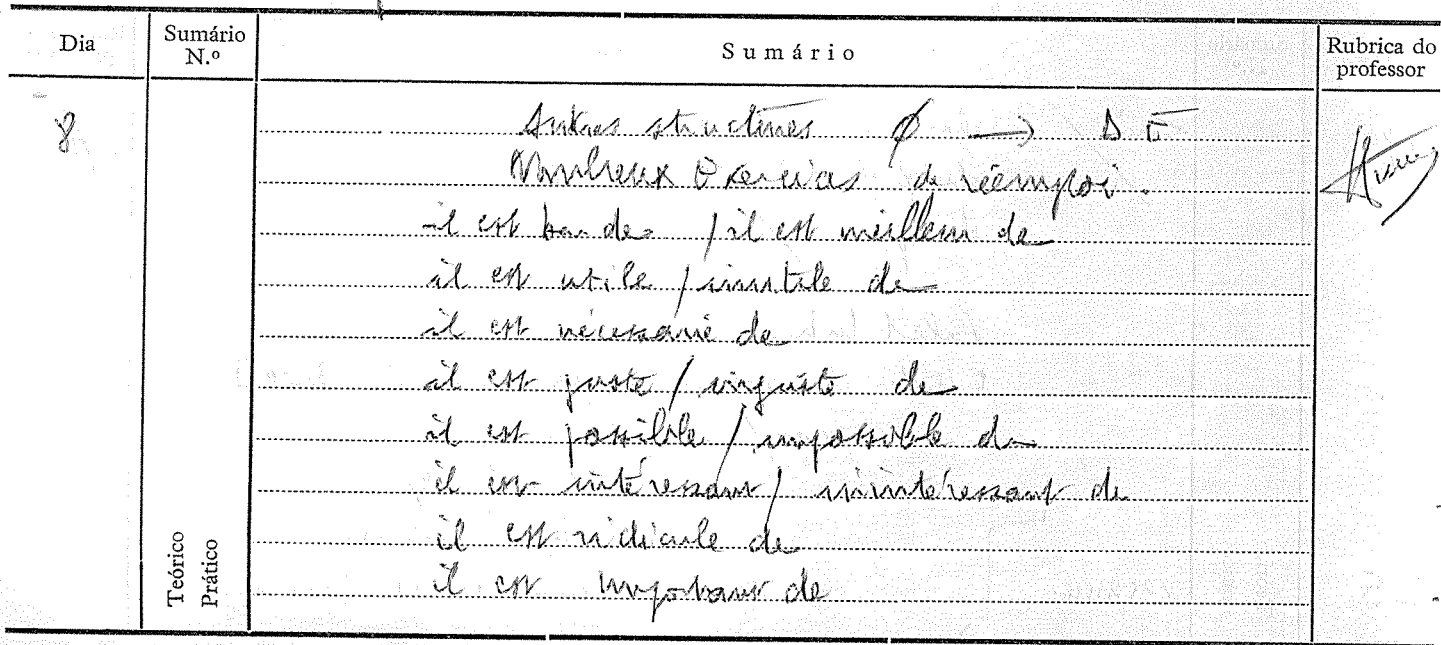 Dia
Sumário N.º
Sumário
Rubrica do professor
8
Autres structures Ø → DE
Nombreux Exercices de réemploi.
il est bon de / il est meilleur de
il est utile / inutile de
il est nécessaire de
il est juste / injuste de
il est possible / impossible de
il est intéressant / inintéressant de
il est ridicule de
il est important de
Teórico
Prático